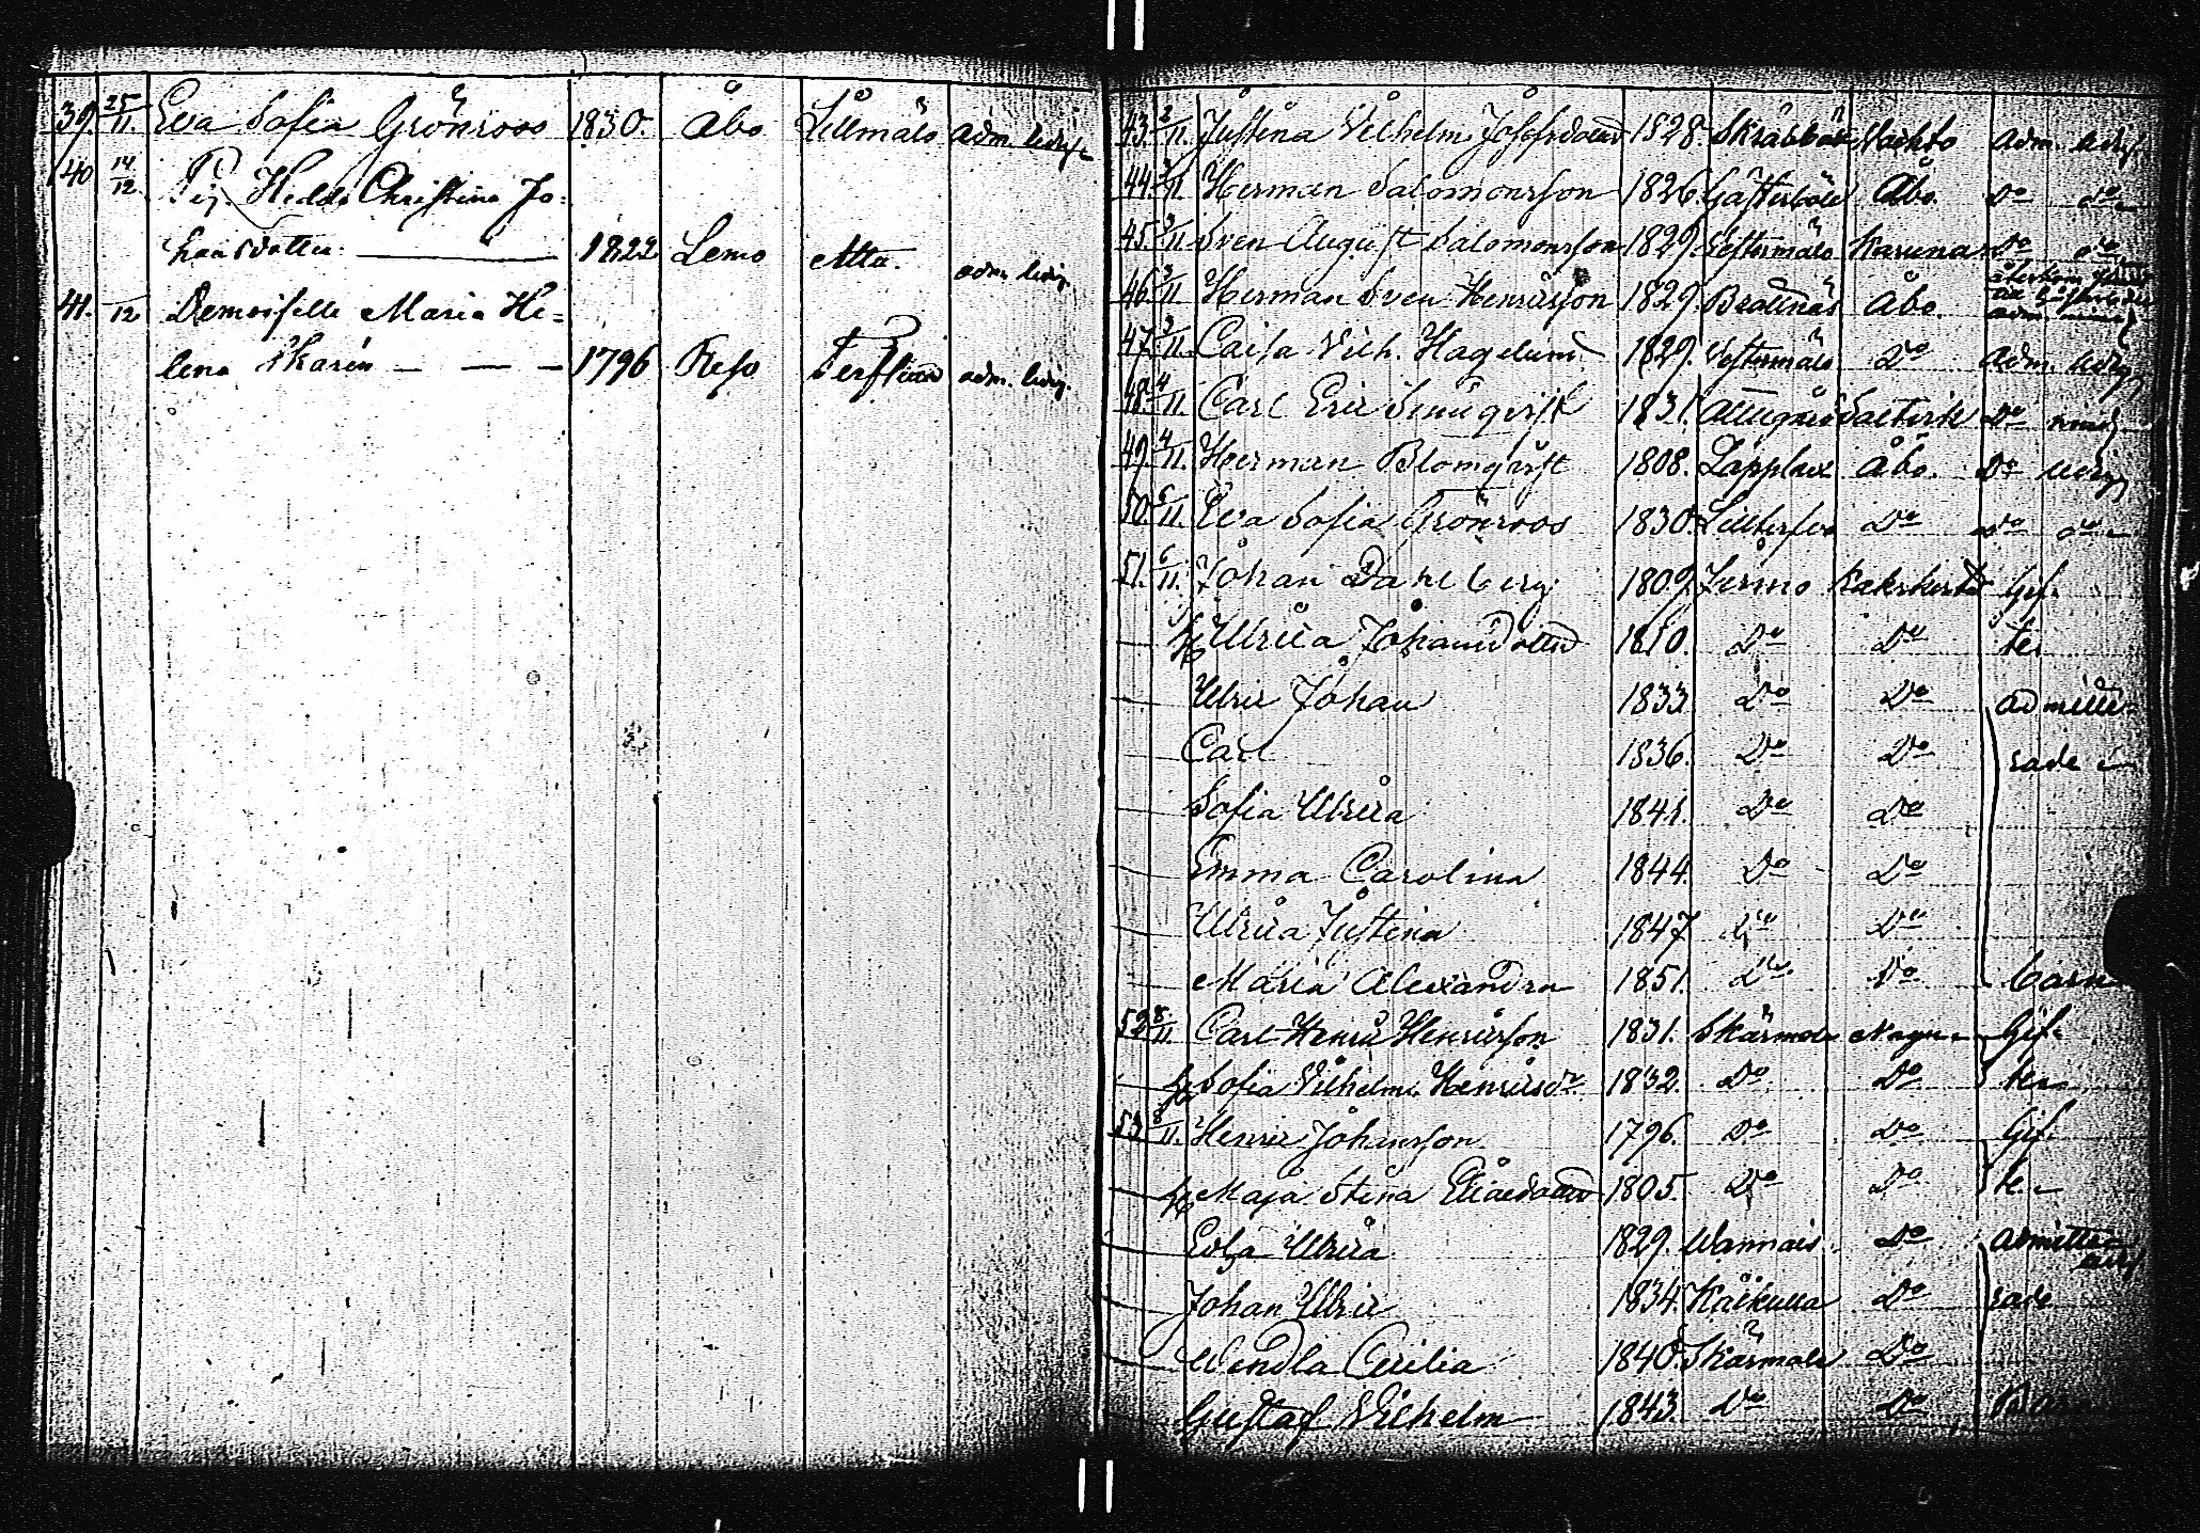 39. 25/11. Eva Sofia Grönroos 1830. Åbo Lillmälö adm. ledig
40 14/12. Pig. Hedda Christina Jo-
hansdotter 1822 Lemo Attu. adm. ledig.
41. /12 Demoiselle Maria He-
lena Skarin 1796 Reso adm. ledig.
43. 2/11. Justina Vilhelm. Josefsdotter 1828. Skräbböle Vachto adm. ledig
44. /11. Herman Salomonsson 1826. Gästerböle Åbo. Do do
45. 3/11 Sven August Salomonsson 1829. Vestermälö Karuna Do do
46. 3/11 Herman Sven Henricsson 1829. Bredinäs Åbo.
47. 3/11. Caisa Vilh. Hagelund 1829. Vestermälö Do adm. ledig
48. 4/11. Carl Eric 1831. Attugård Saltvik Do
49. 4/11. Herman Blomqvist 1808. Lapplax Åbo. Do ledig
50. 5/11. Eva Sofia Grönroos 1830. Do Do do
51. 6/11. Johan Dahlberg 1809. Jermo Kakskerta Gif-
h. Ulrica Johansdotter 1810. Do Do te.
Ulric Johan 1833. Do Do admitte-
Carl 1836. Do Do rade
Sofia Ulrica 1841. Do Do
Emma Carolina 1844. Do Do
Ulrica Justina 1847 Do Do
Maria Alexandra 1851. Do Do barn
52 8/11. Carl Henric Henricsson 1831. Skärmola Nagu Gif-
h. Sofia Vilhelm. Henricsdr 1832. Do Do te
53 8/11. Henric Johansson 1796. Do Do Gif-
h. Maja Stina Eliaedotter 1805. Do Do te.
Eva Ulrica 1829. Wannais Do admitte-
Johan Ulric 1834. Käikulla Do rade
Wendla Cecilia 1840. Skärmola Do
Gustaf Vilhelm 1843. Do Do